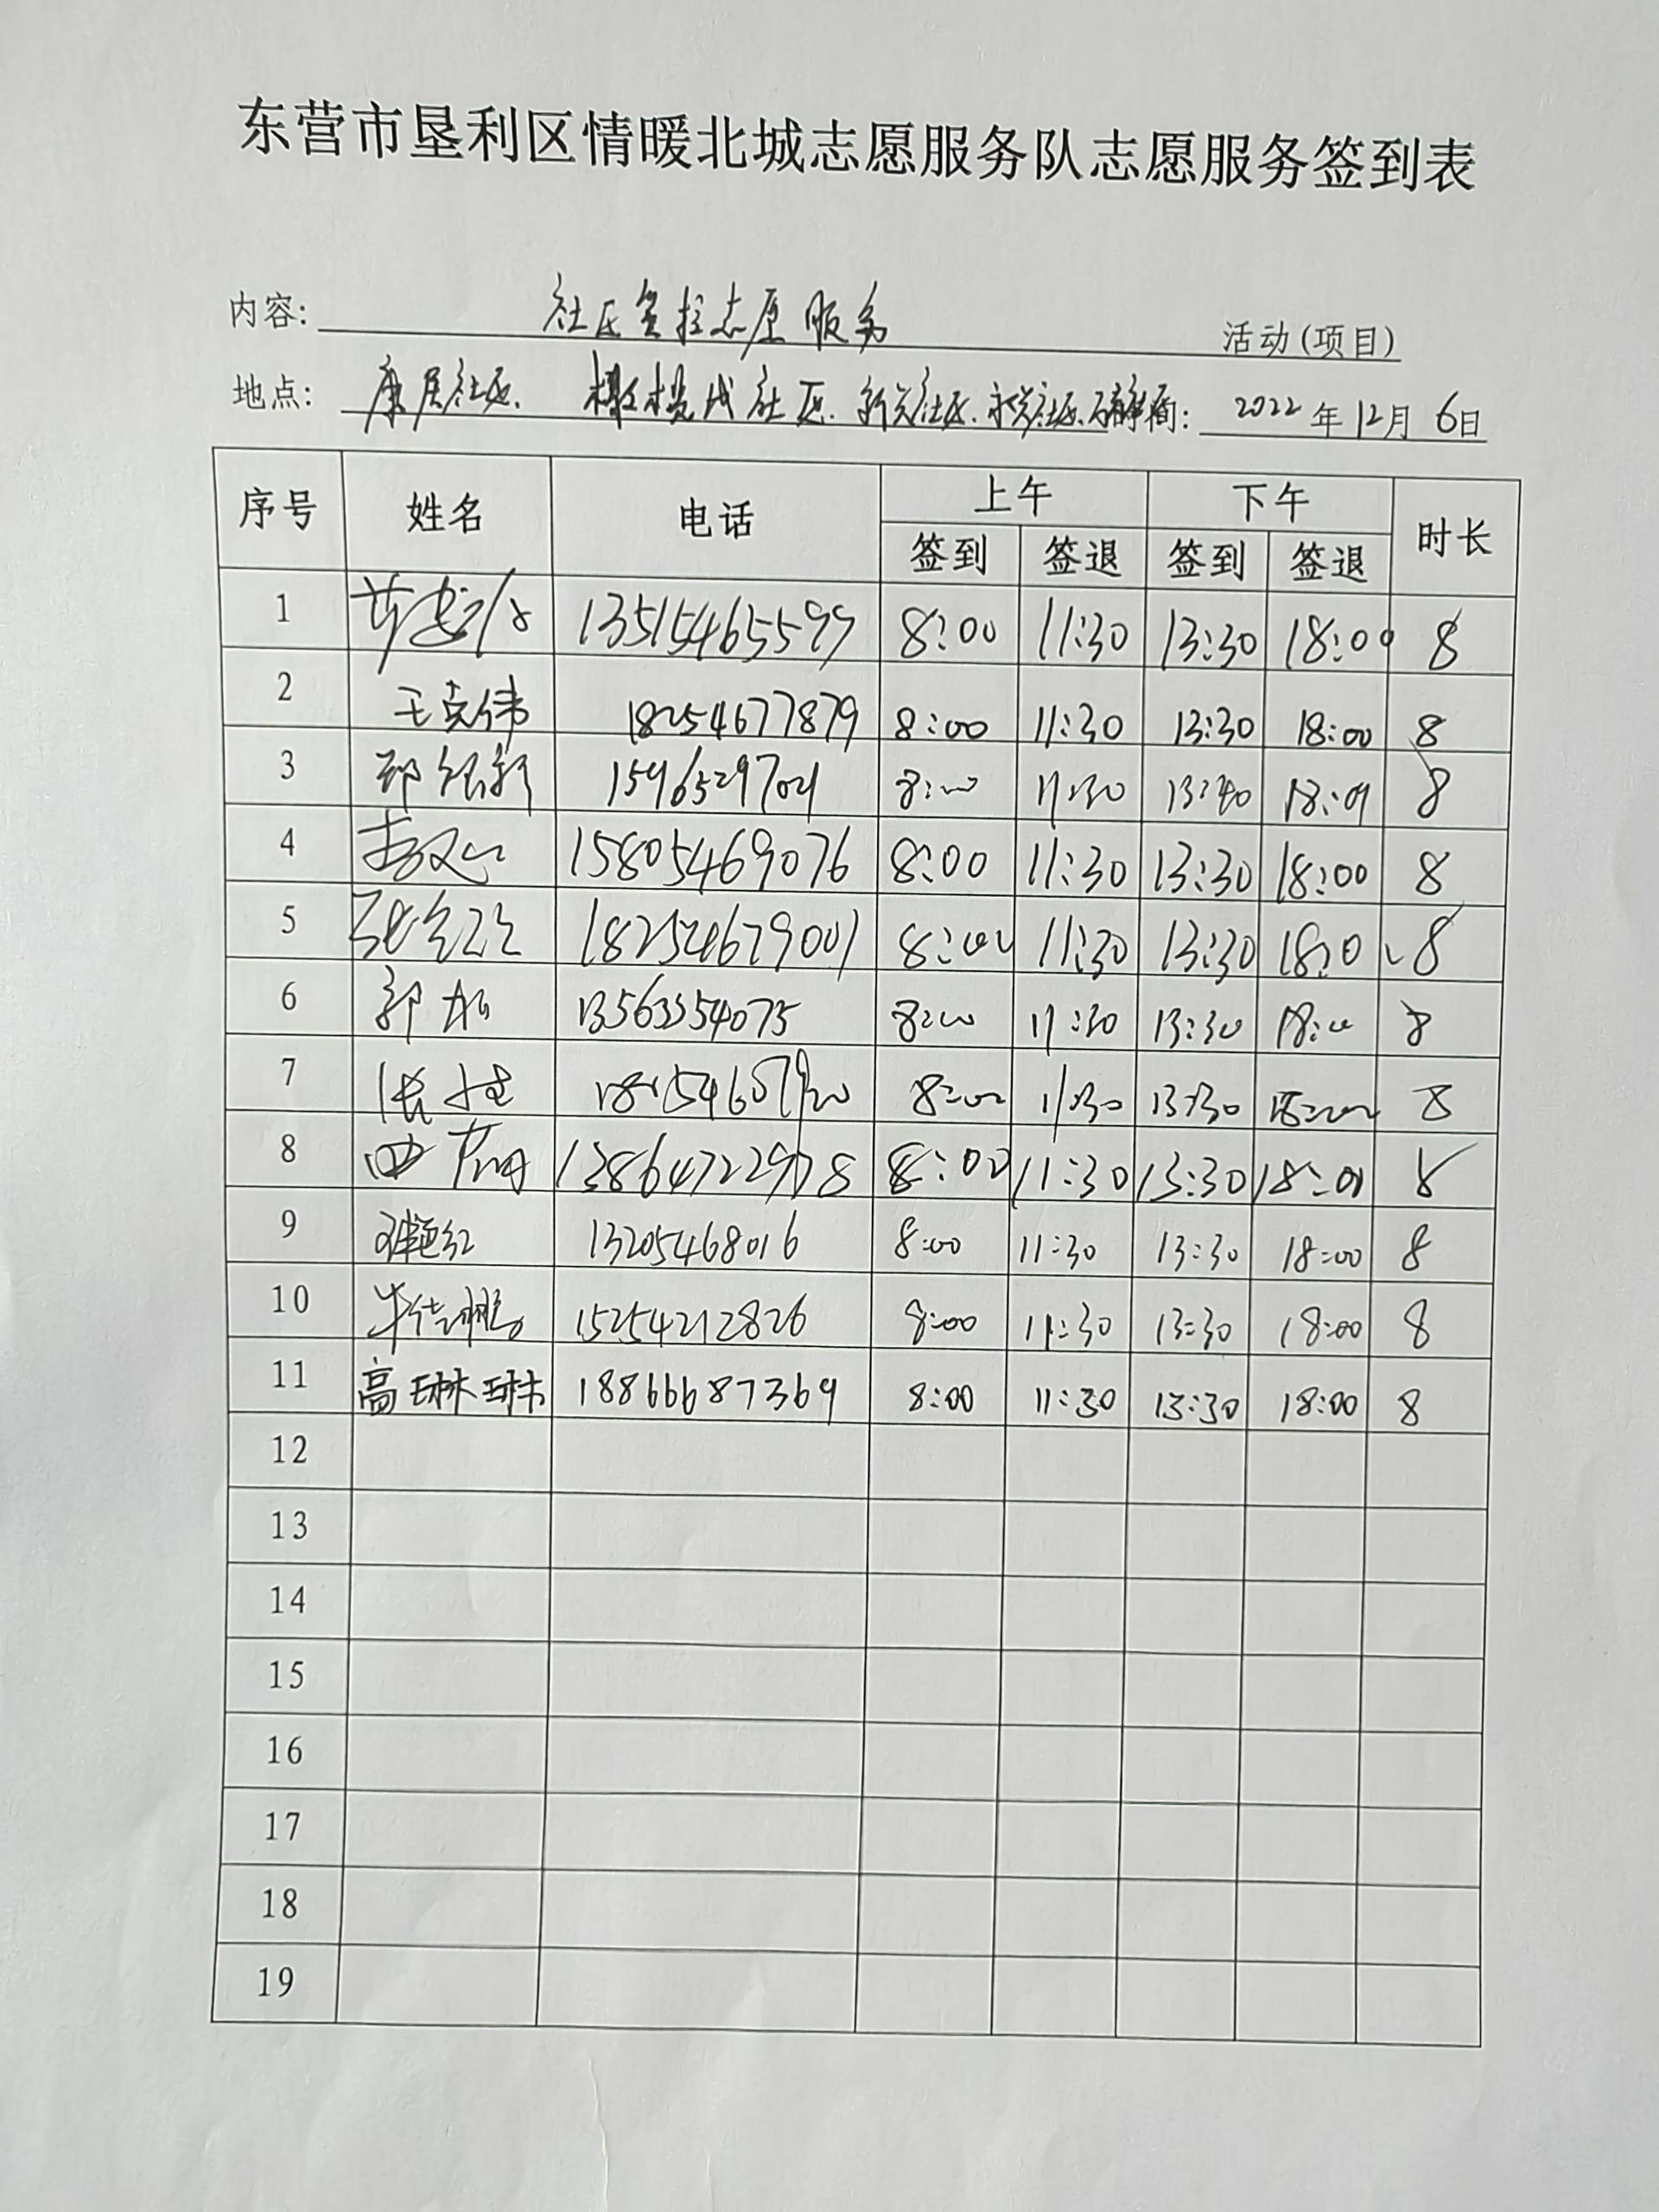 东营市垦利区情暖北城志愿服务队志愿服务签到表
内容: 社区 志愿服务 活动(项目)
地点: 康居社区. 社区. 新兴社区. 永兴社区. 时间: 2022年12月6日
序号 姓名 电话 上午 下午 时长
签到 签退 签到 签退
1 13515465599 8:00 11:30 13:30 18:00 8
2 王克伟 18254677879 8:00 11:30 13:30 18:00 8
3 8:00 11:30 18:00 8
4 15805469076 8:00 11:30 13:30 18:00 8
5 18254679001 8:00 11:30 13:30 8
6 13563354075 8:00 11:30 13:30 18:00 8
7 8:00 11:30 13:30 18:00 8
8 13864722978 8:00 11:30 13:30 18:00 8
9 13205468016 8:00 11:30 13:30 18:00 8
10 15254212826 8:00 11:30 13:30 18:00 8
11 高琳琳 18866687369 8:00 11:30 13:30 18:00 8
12
13
14
15
16
17
18
19